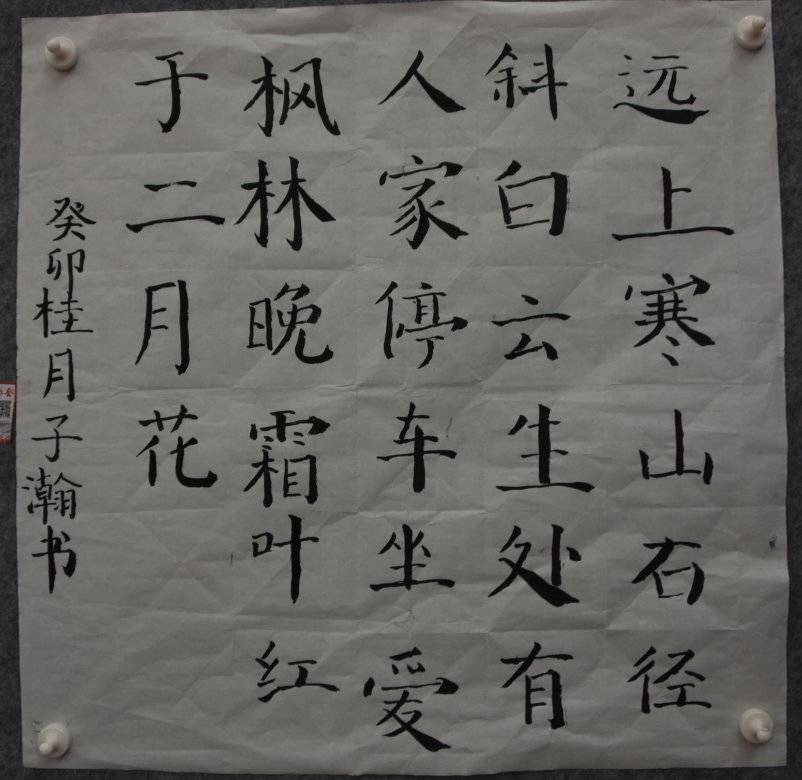 远上寒山石径
斜白云生处有
人家停车坐爱
枫林晚霜叶红
于二月花
癸卯桂月子瀚书